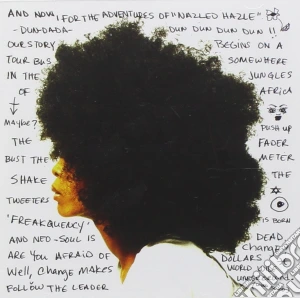 AND NOW! FOR THE ADVENTURES OF "NAZLED HAZLE"
-DUN-DADA- DUN DUN DUN DUN!!
OUR STORY BEGINS ON A
TOUR BUS SOMEWHERE
IN THE JUNGLES
OF AFRICA
MAYBE? PUSH UP
THE FADER
BUST THE METER
SHAKE THE
TWEETERS
'FREAKQUENCY' IS BORN
AND NEO-SOUL IS DEAD
ARE YOU AFRAID OF Change?
Well, Change MAKES DOLLARS
FOLLOW THE LEADER WORLD WIDE